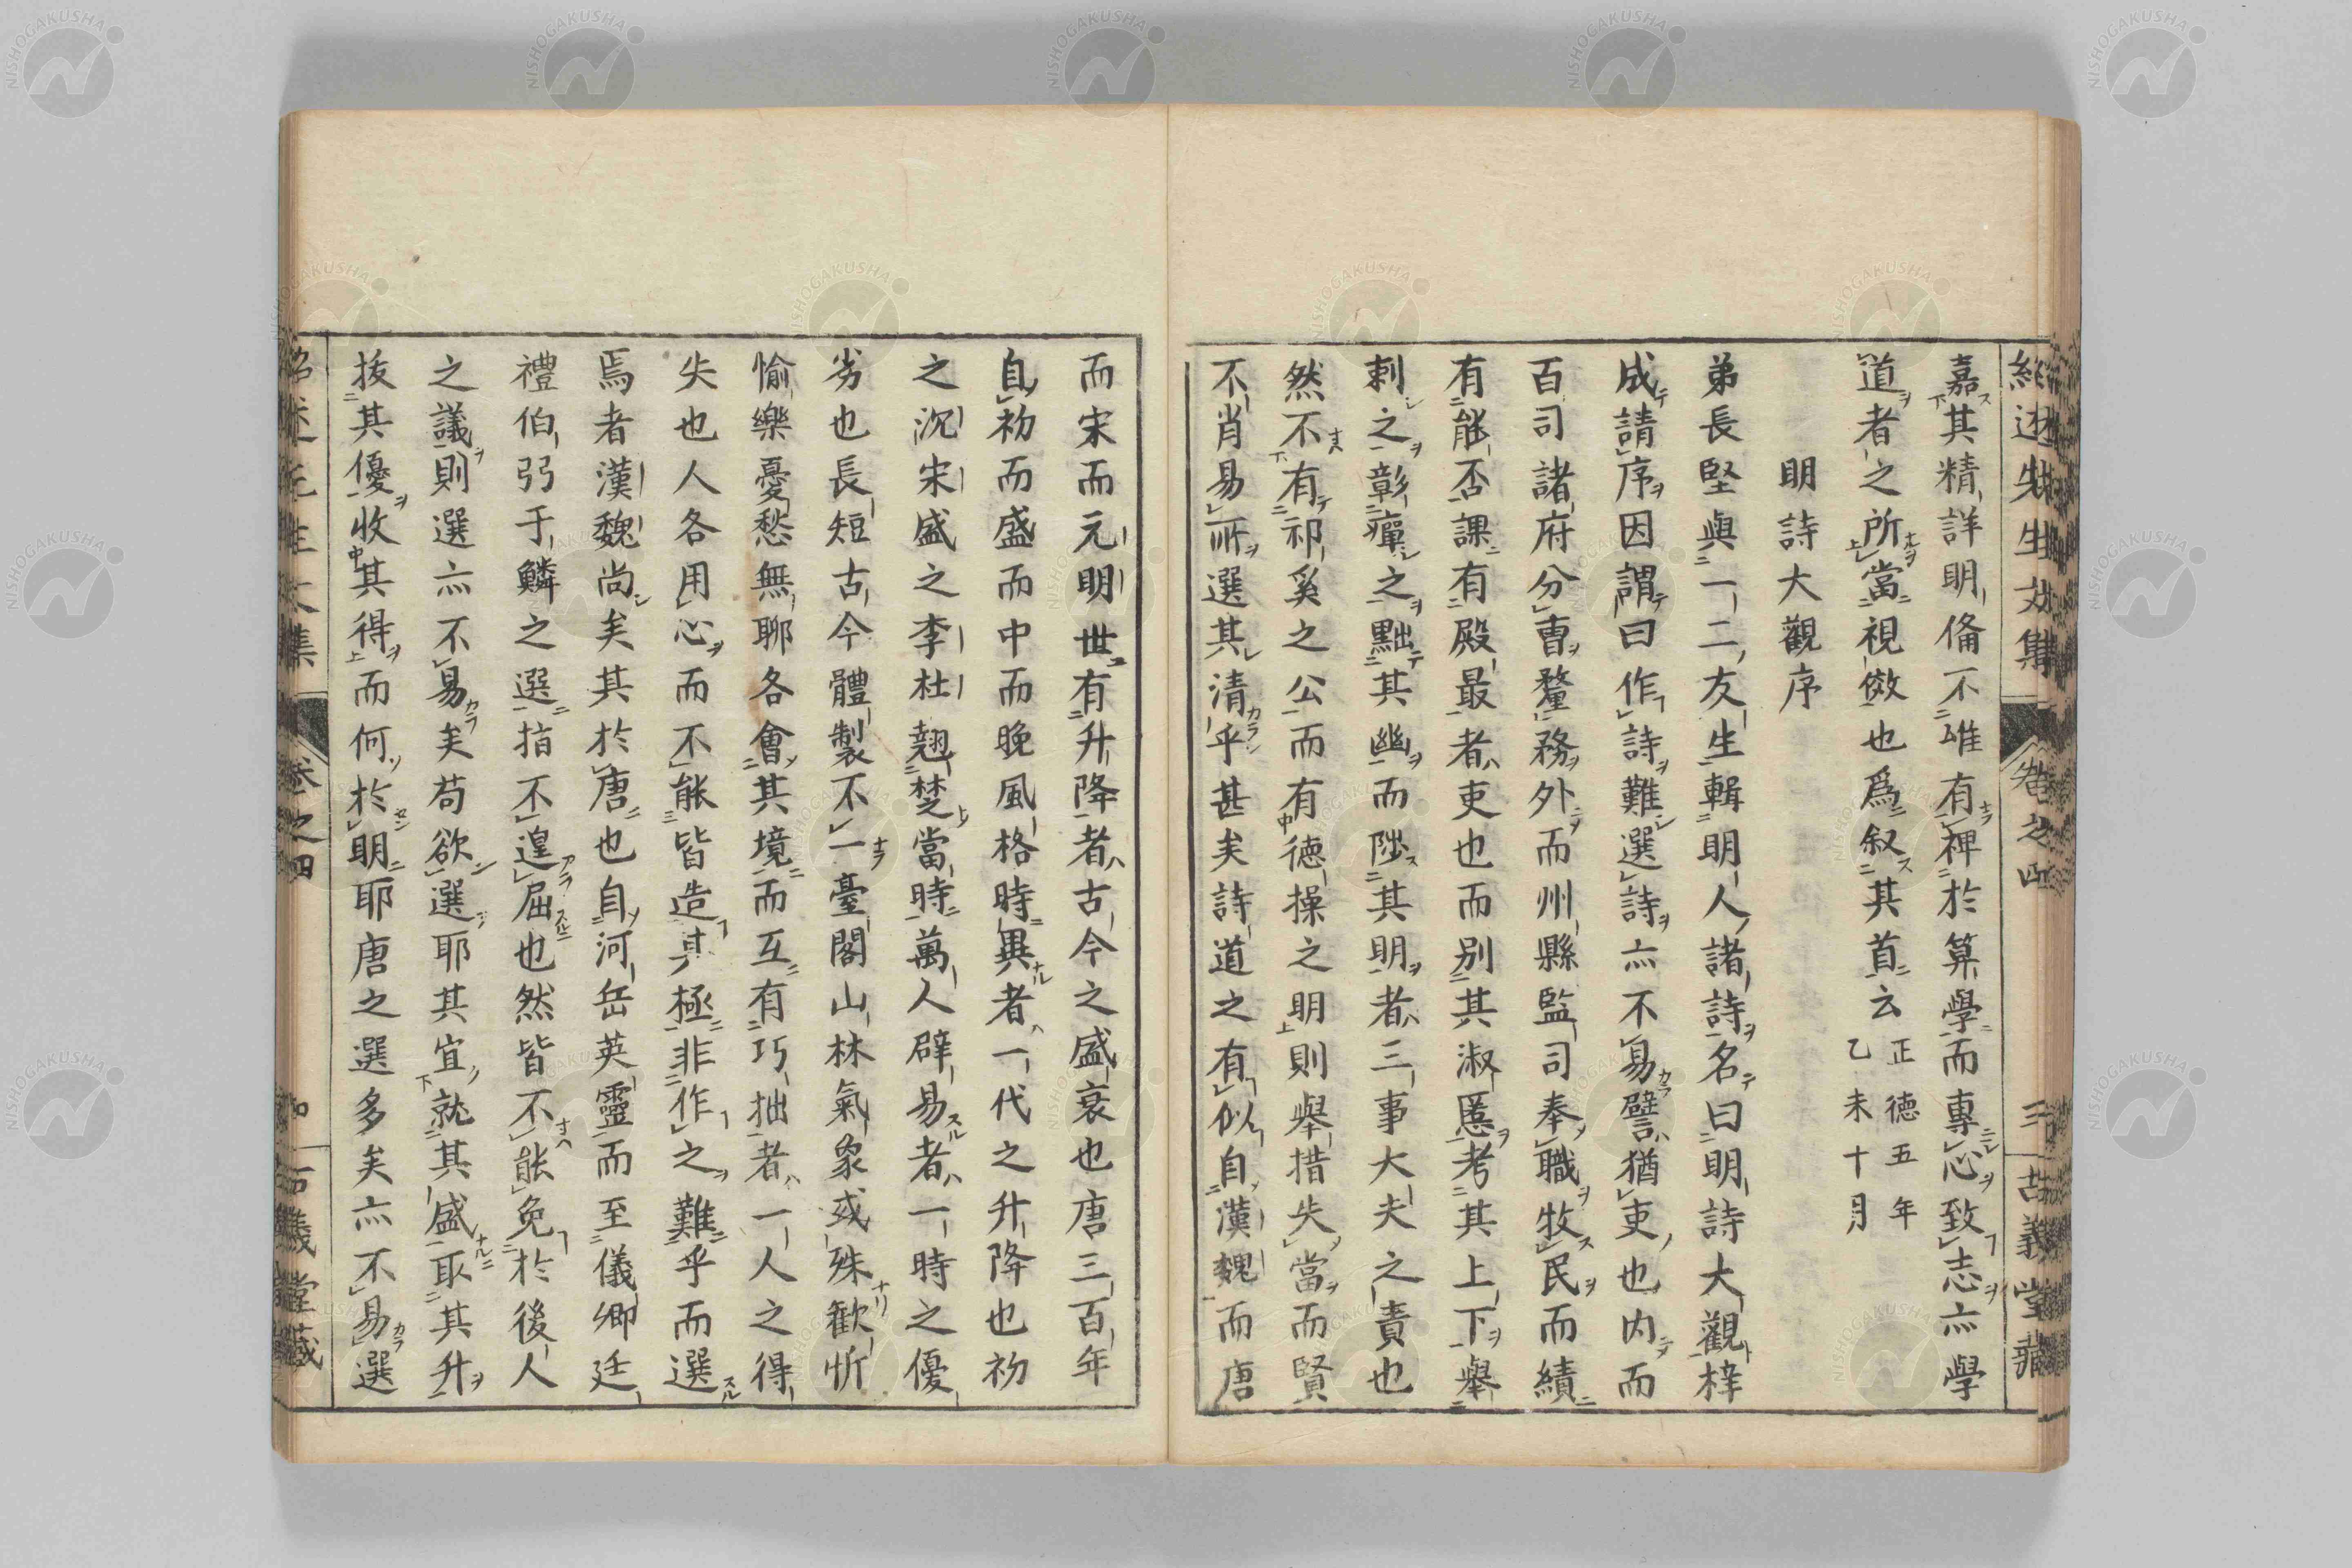 紹述先生文集 卷之四 三 古義堂藏
嘉其精詳明備不唯有裨於算學而專心致志亦學
道者之所當視傚也爲叙其首云正德五年乙未十月
明詩大觀序
弟長堅與一二友生輯明人諸詩名曰明詩大觀梓
成請序因謂曰作詩難選詩亦不易譬猶吏也内而
百司諸府分曹釐務外而州縣監司奉職牧民而績
有能否課有殿最者吏也而别其淑慝考其上下舉
刺之彰癉之黜其幽而陟其明者三事大夫之責也
然不有祁奚之公而有德操之明則舉措失當而賢
不肖易所選其清乎甚矣詩道之有似自漢魏而唐
而宋而元明世有升降者古今之盛衰也唐三百年
自初而盛而中而晚風格時異者一代之升降也初
之沉宋盛之李杜翹楚當時萬人辟易者一時之優
劣也長短古今體製不一臺閣山林氣象或殊歡忻
愉樂憂愁無聊各會其境而互有巧拙者一人之得
失也人各用心而不能皆造其極非作之難乎而選
焉者漢魏尚矣其於唐也自河岳英靈而至儀卿廷
禮伯弱于鱗之選指不遑屈也然皆不能免於後人
之議則選亦不易矣苟欲選耶其宜就其盛取其升
拔其優收其得而何於明耶唐之選多矣亦不易選
紹述先生文集 卷之四 古義堂藏
NISHOGAKUSHA